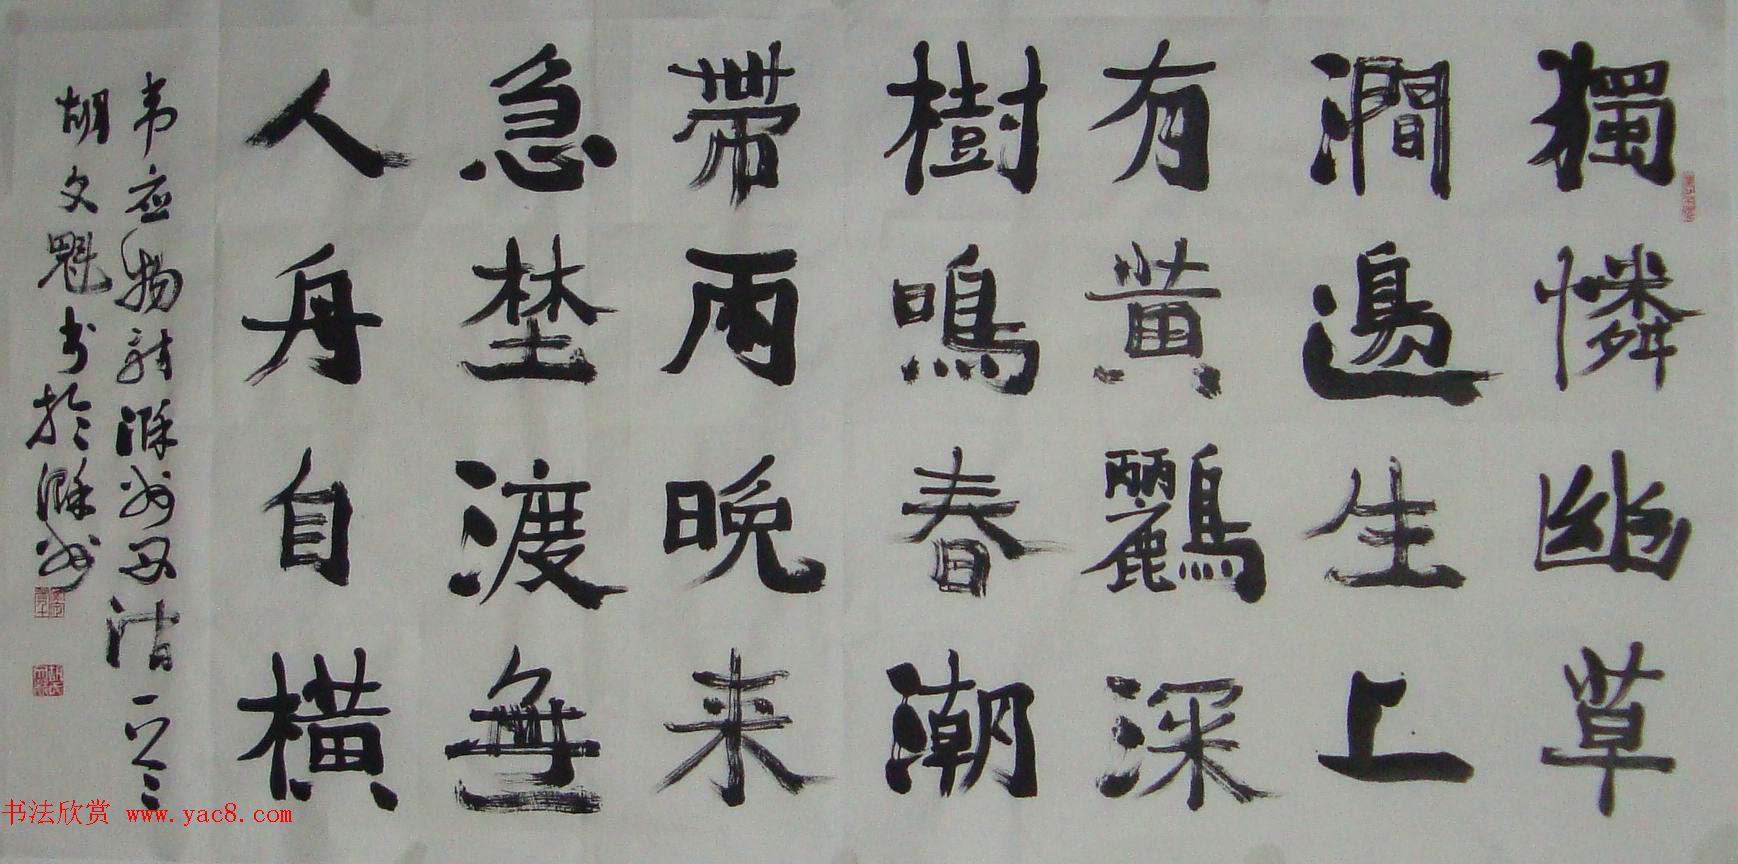 獨憐幽草
澗邊生上
有黄鸝深
樹鳴春潮
帶雨晚来
急埜渡無
人舟自横
韦应物诗滁州西涧一
胡文魁书於滁州
书法欣赏 www.yac8.com